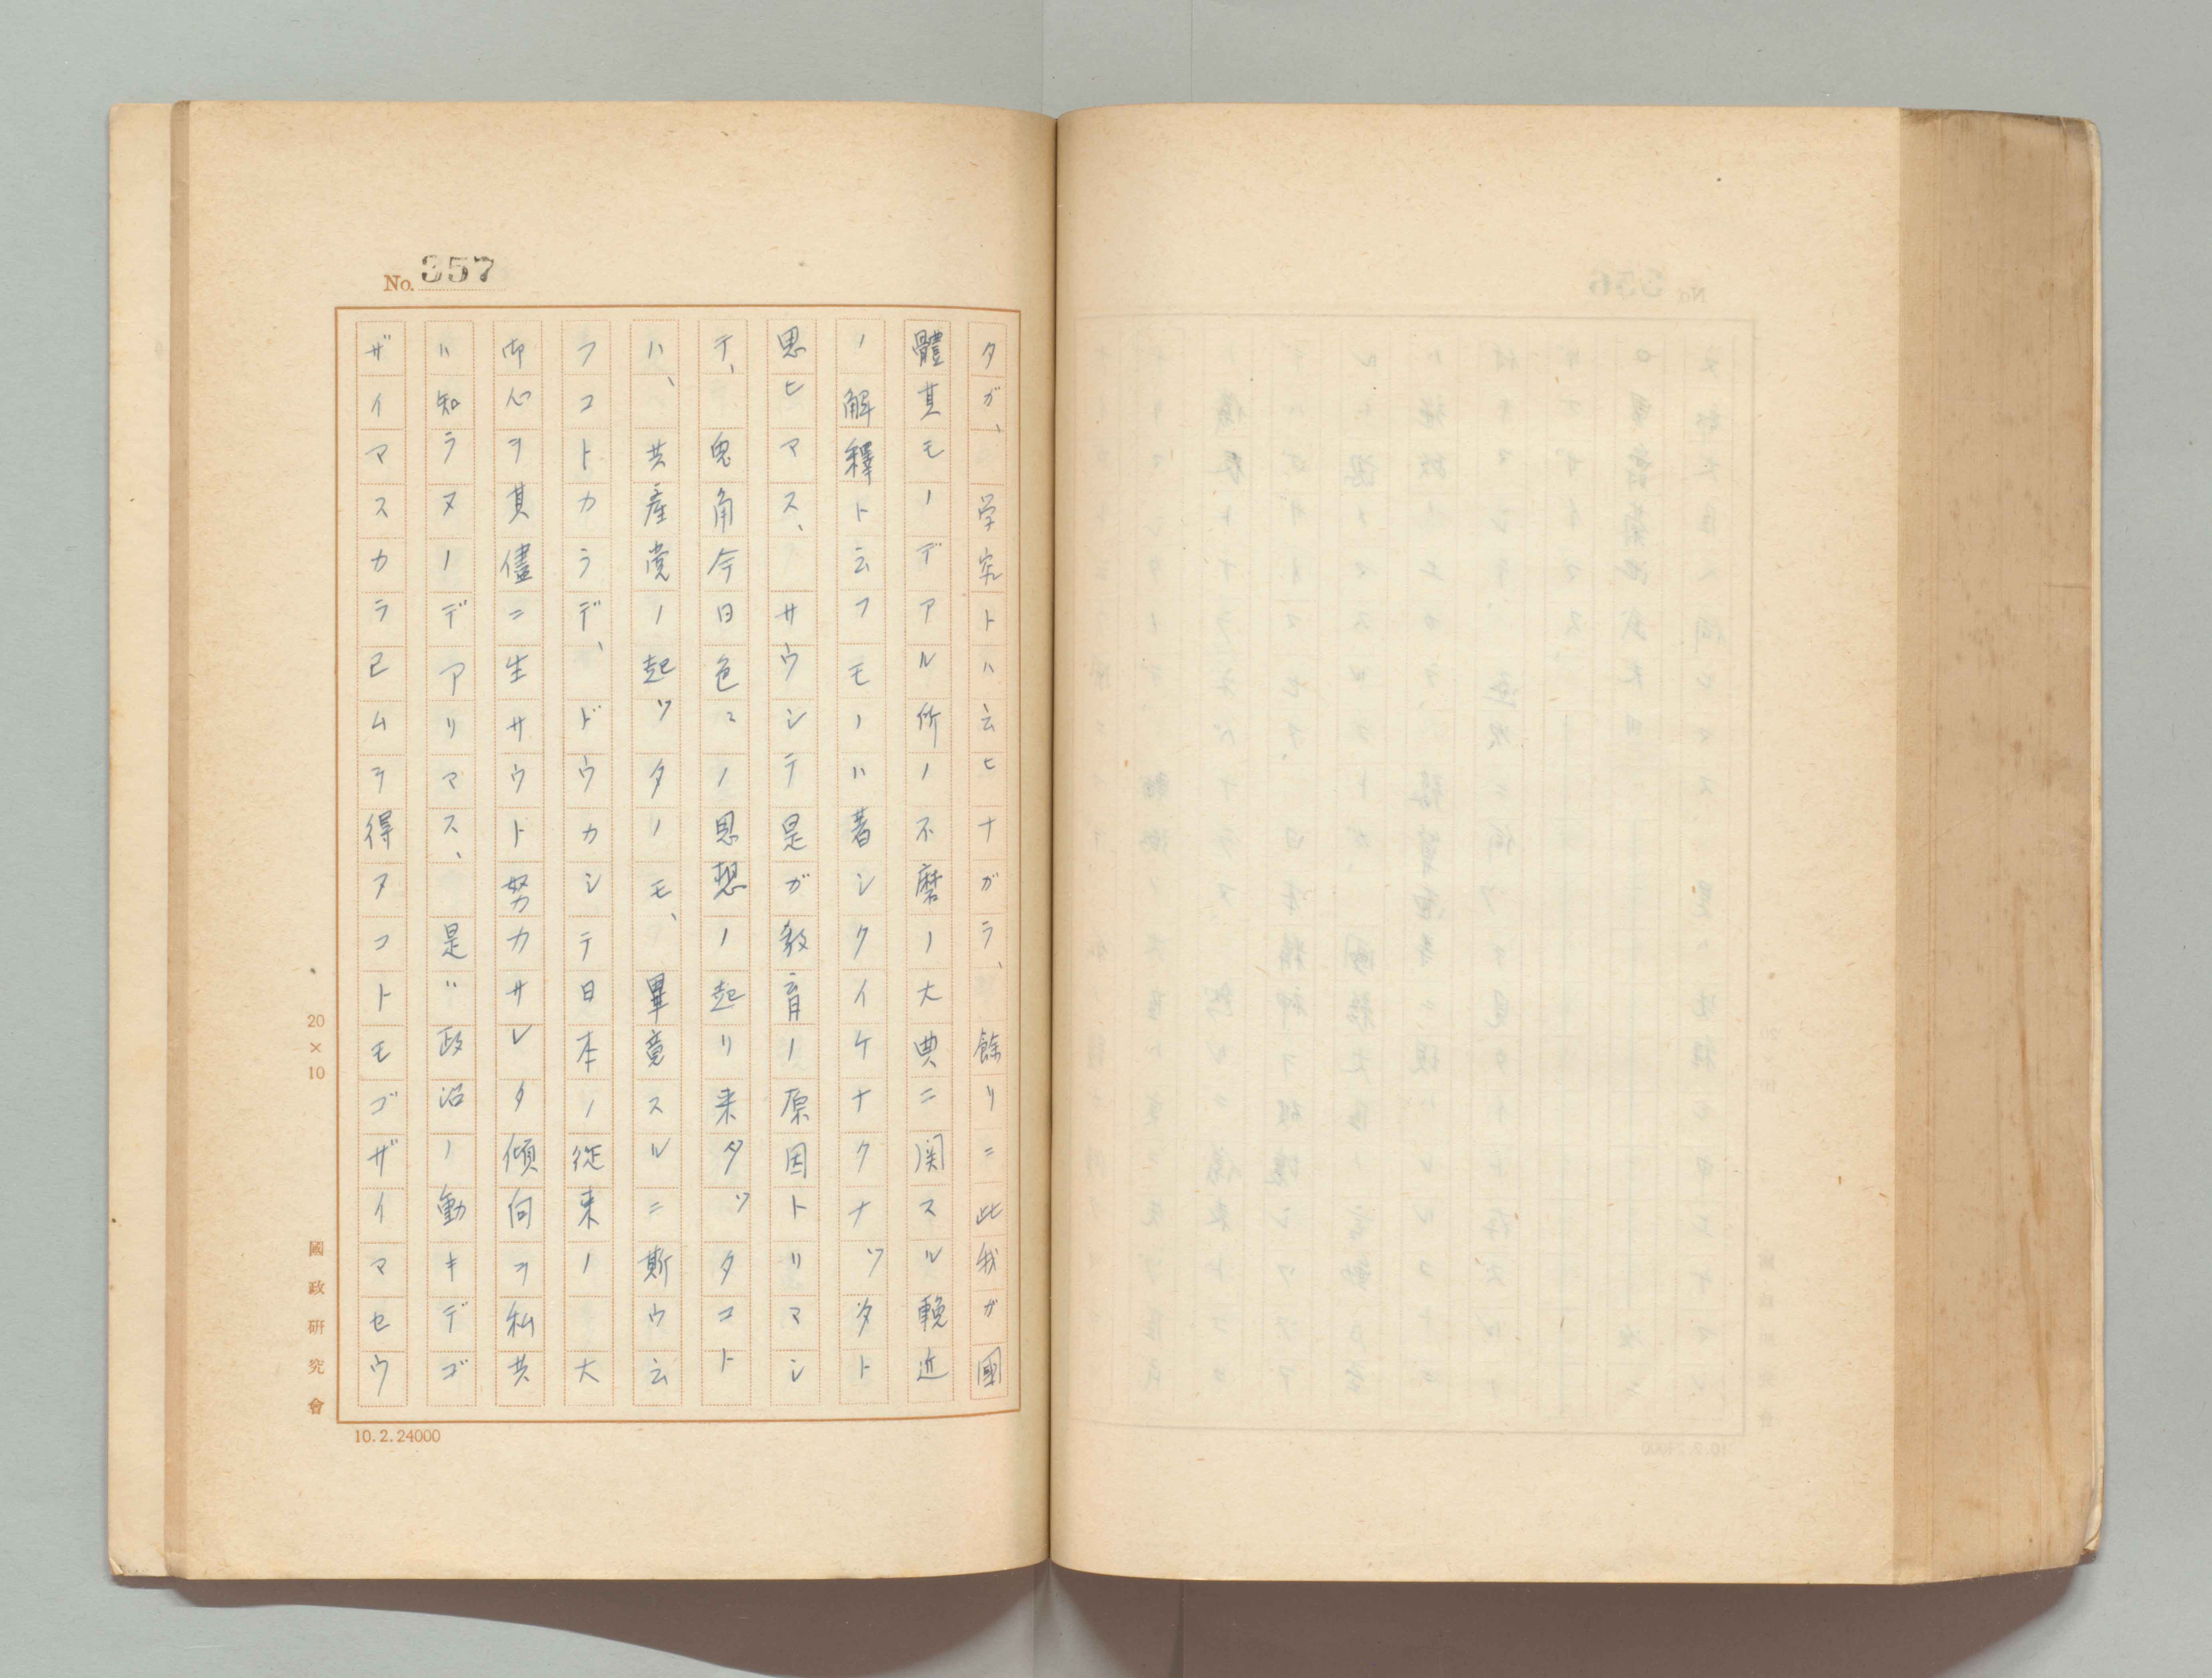 No. 357
タガ、学究トハ云ヒナガラ、餘リニ此我ガ國
體其モノデアル所ノ不磨ノ大典ニ関スル輓近
ノ解釋ト云フモノハ著シクイケナクナツタト
思ヒマス、サウシテ是ガ教育ノ原因トリマシ
テ、兎角今日色々ノ思想ノ起リ来タツタコト
ハ、共産党ノ起ツタノモ、畢竟スルニ斯ウ云
フコトカラデ、ドウカシテ日本ノ從来ノ大
御心ヲ其儘ニ生サウト努力サレタ傾向ヲ私共
ハ知ラヌノデアリマス、是ハ政治ノ動キデゴ
ザイマスカラ已ムヲ得ヌコトモゴザイマセウ
20×10
國政研究會
10.2.24000